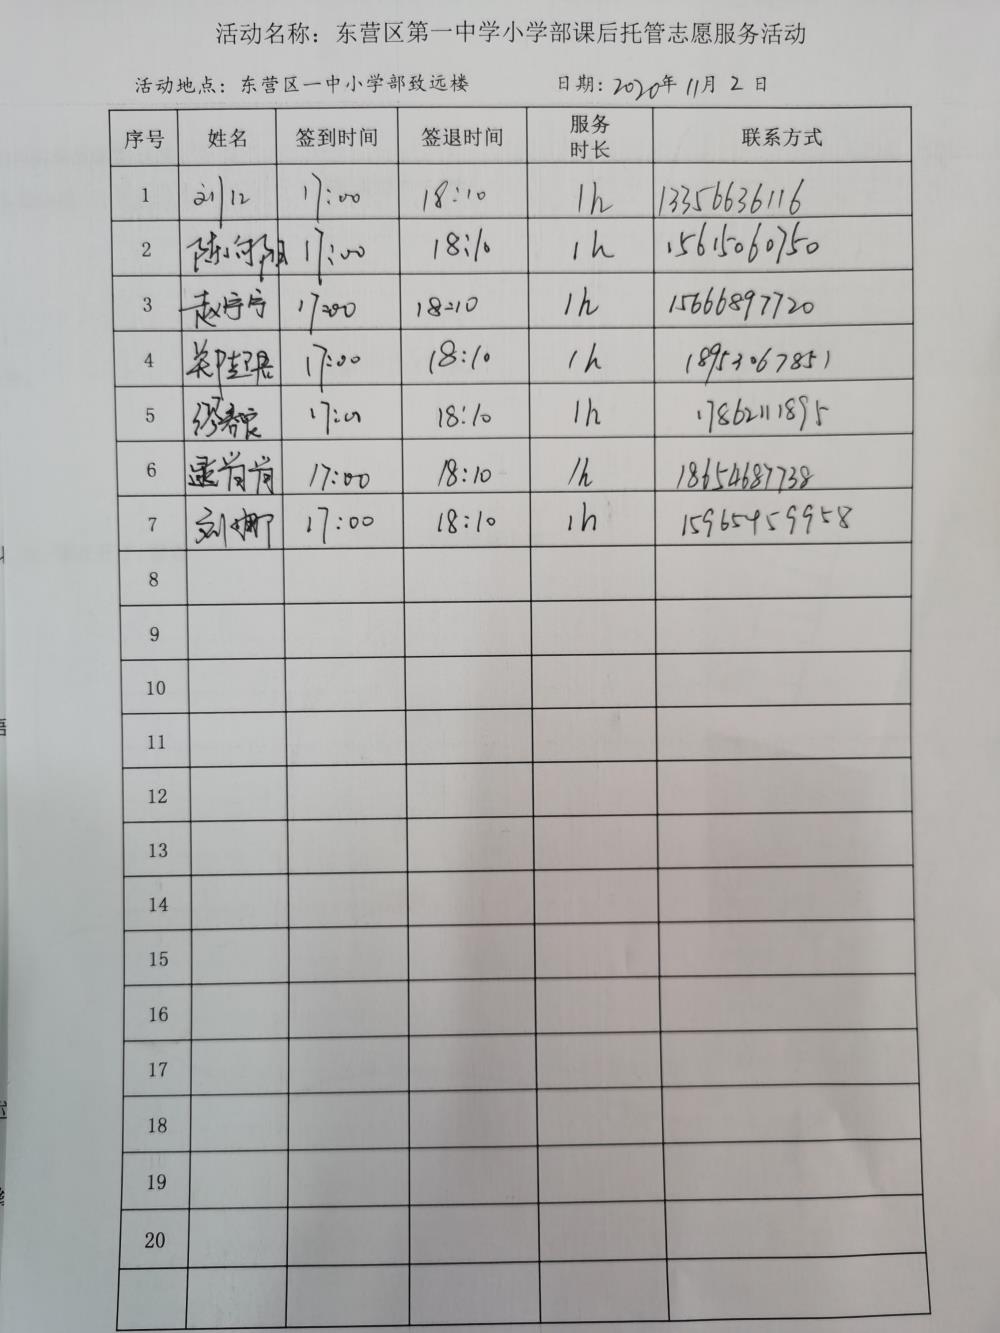 活动名称：东营区第一中学小学部课后托管志愿服务活动
活动地点：东营区一中小学部致远楼 日期：2020年11月2日
序号 姓名 签到时间 签退时间 服务时长 联系方式
1 刘 17:00 18:10 1h 13356636116
2 陈 17:00 18:10 1h 15615060750
3 赵宁宁 17:00 18:10 1h 15666897720
4 17:00 18:10 1h 18953067851
5 17:00 18:10 1h 17862111895
6 肖肖 17:00 18:10 1h 18654687738
7 刘娜 17:00 18:10 1h 15965459958
8
9
10
11
12
13
14
15
16
17
18
19
20